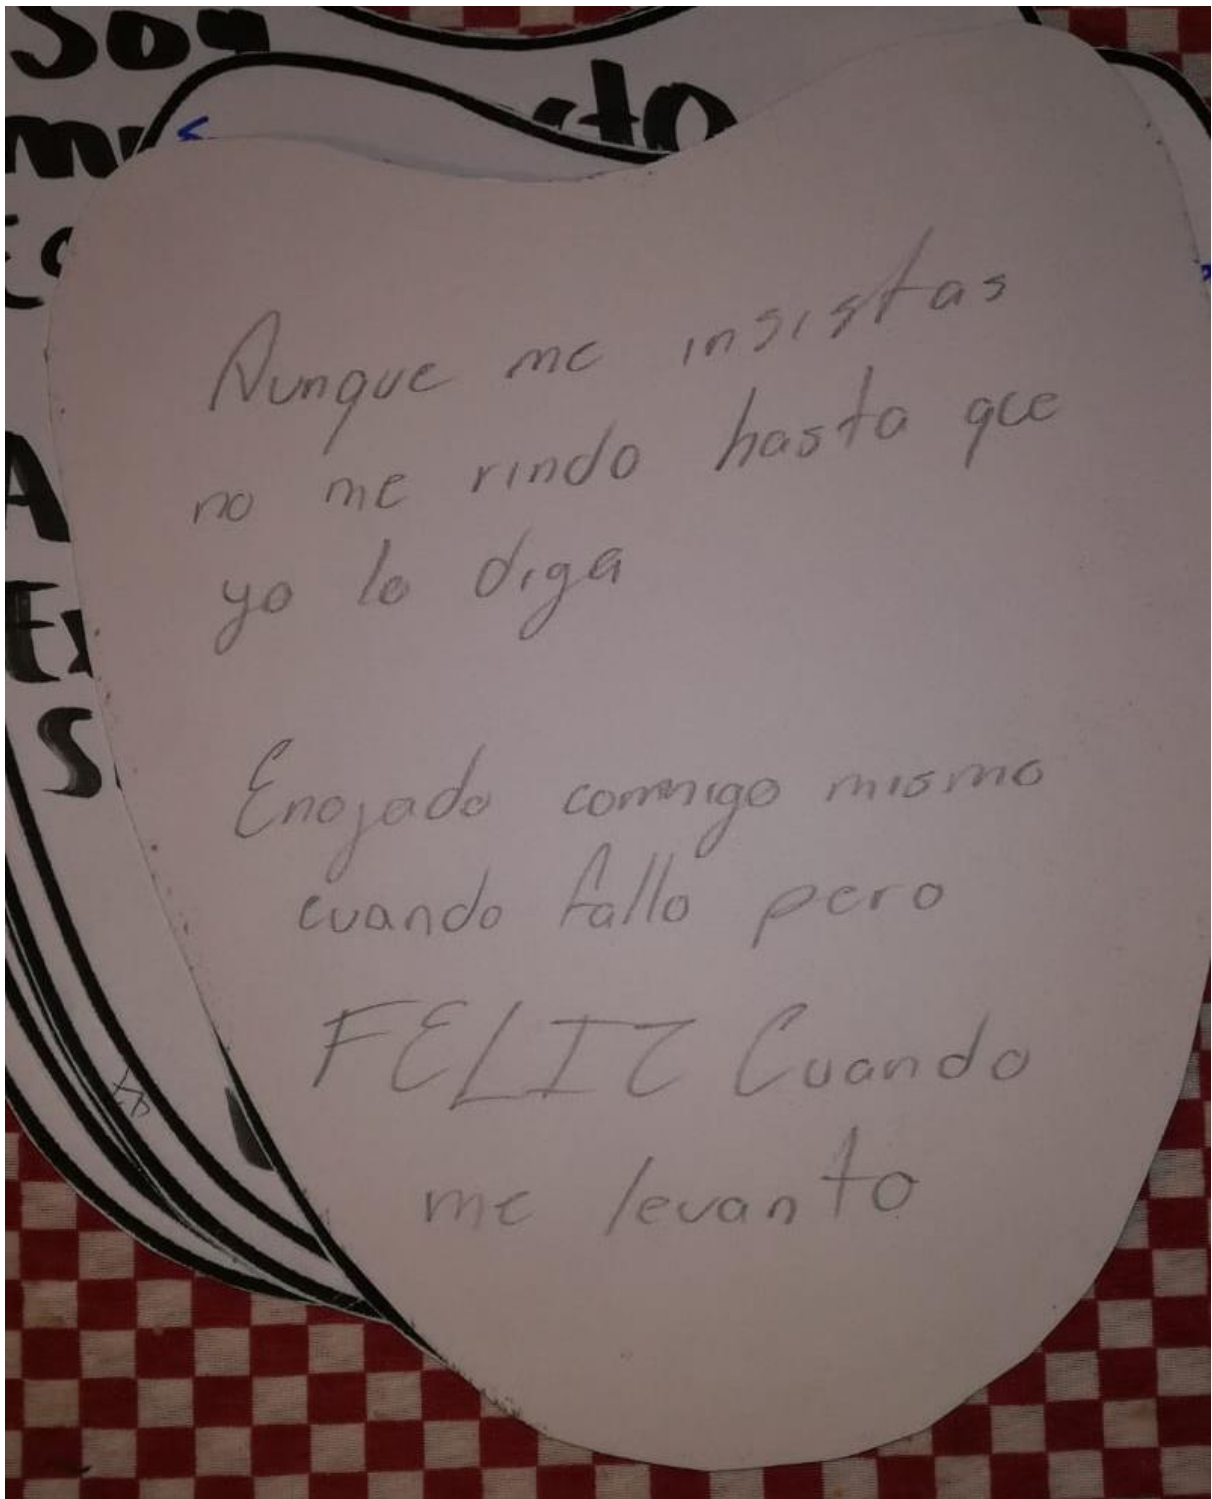 Soy
Aunque me insistas
no me rindo hasta que
yo lo diga
Enojado conmigo mismo
cuando fallo pero
FELIZ Cuando
me levanto